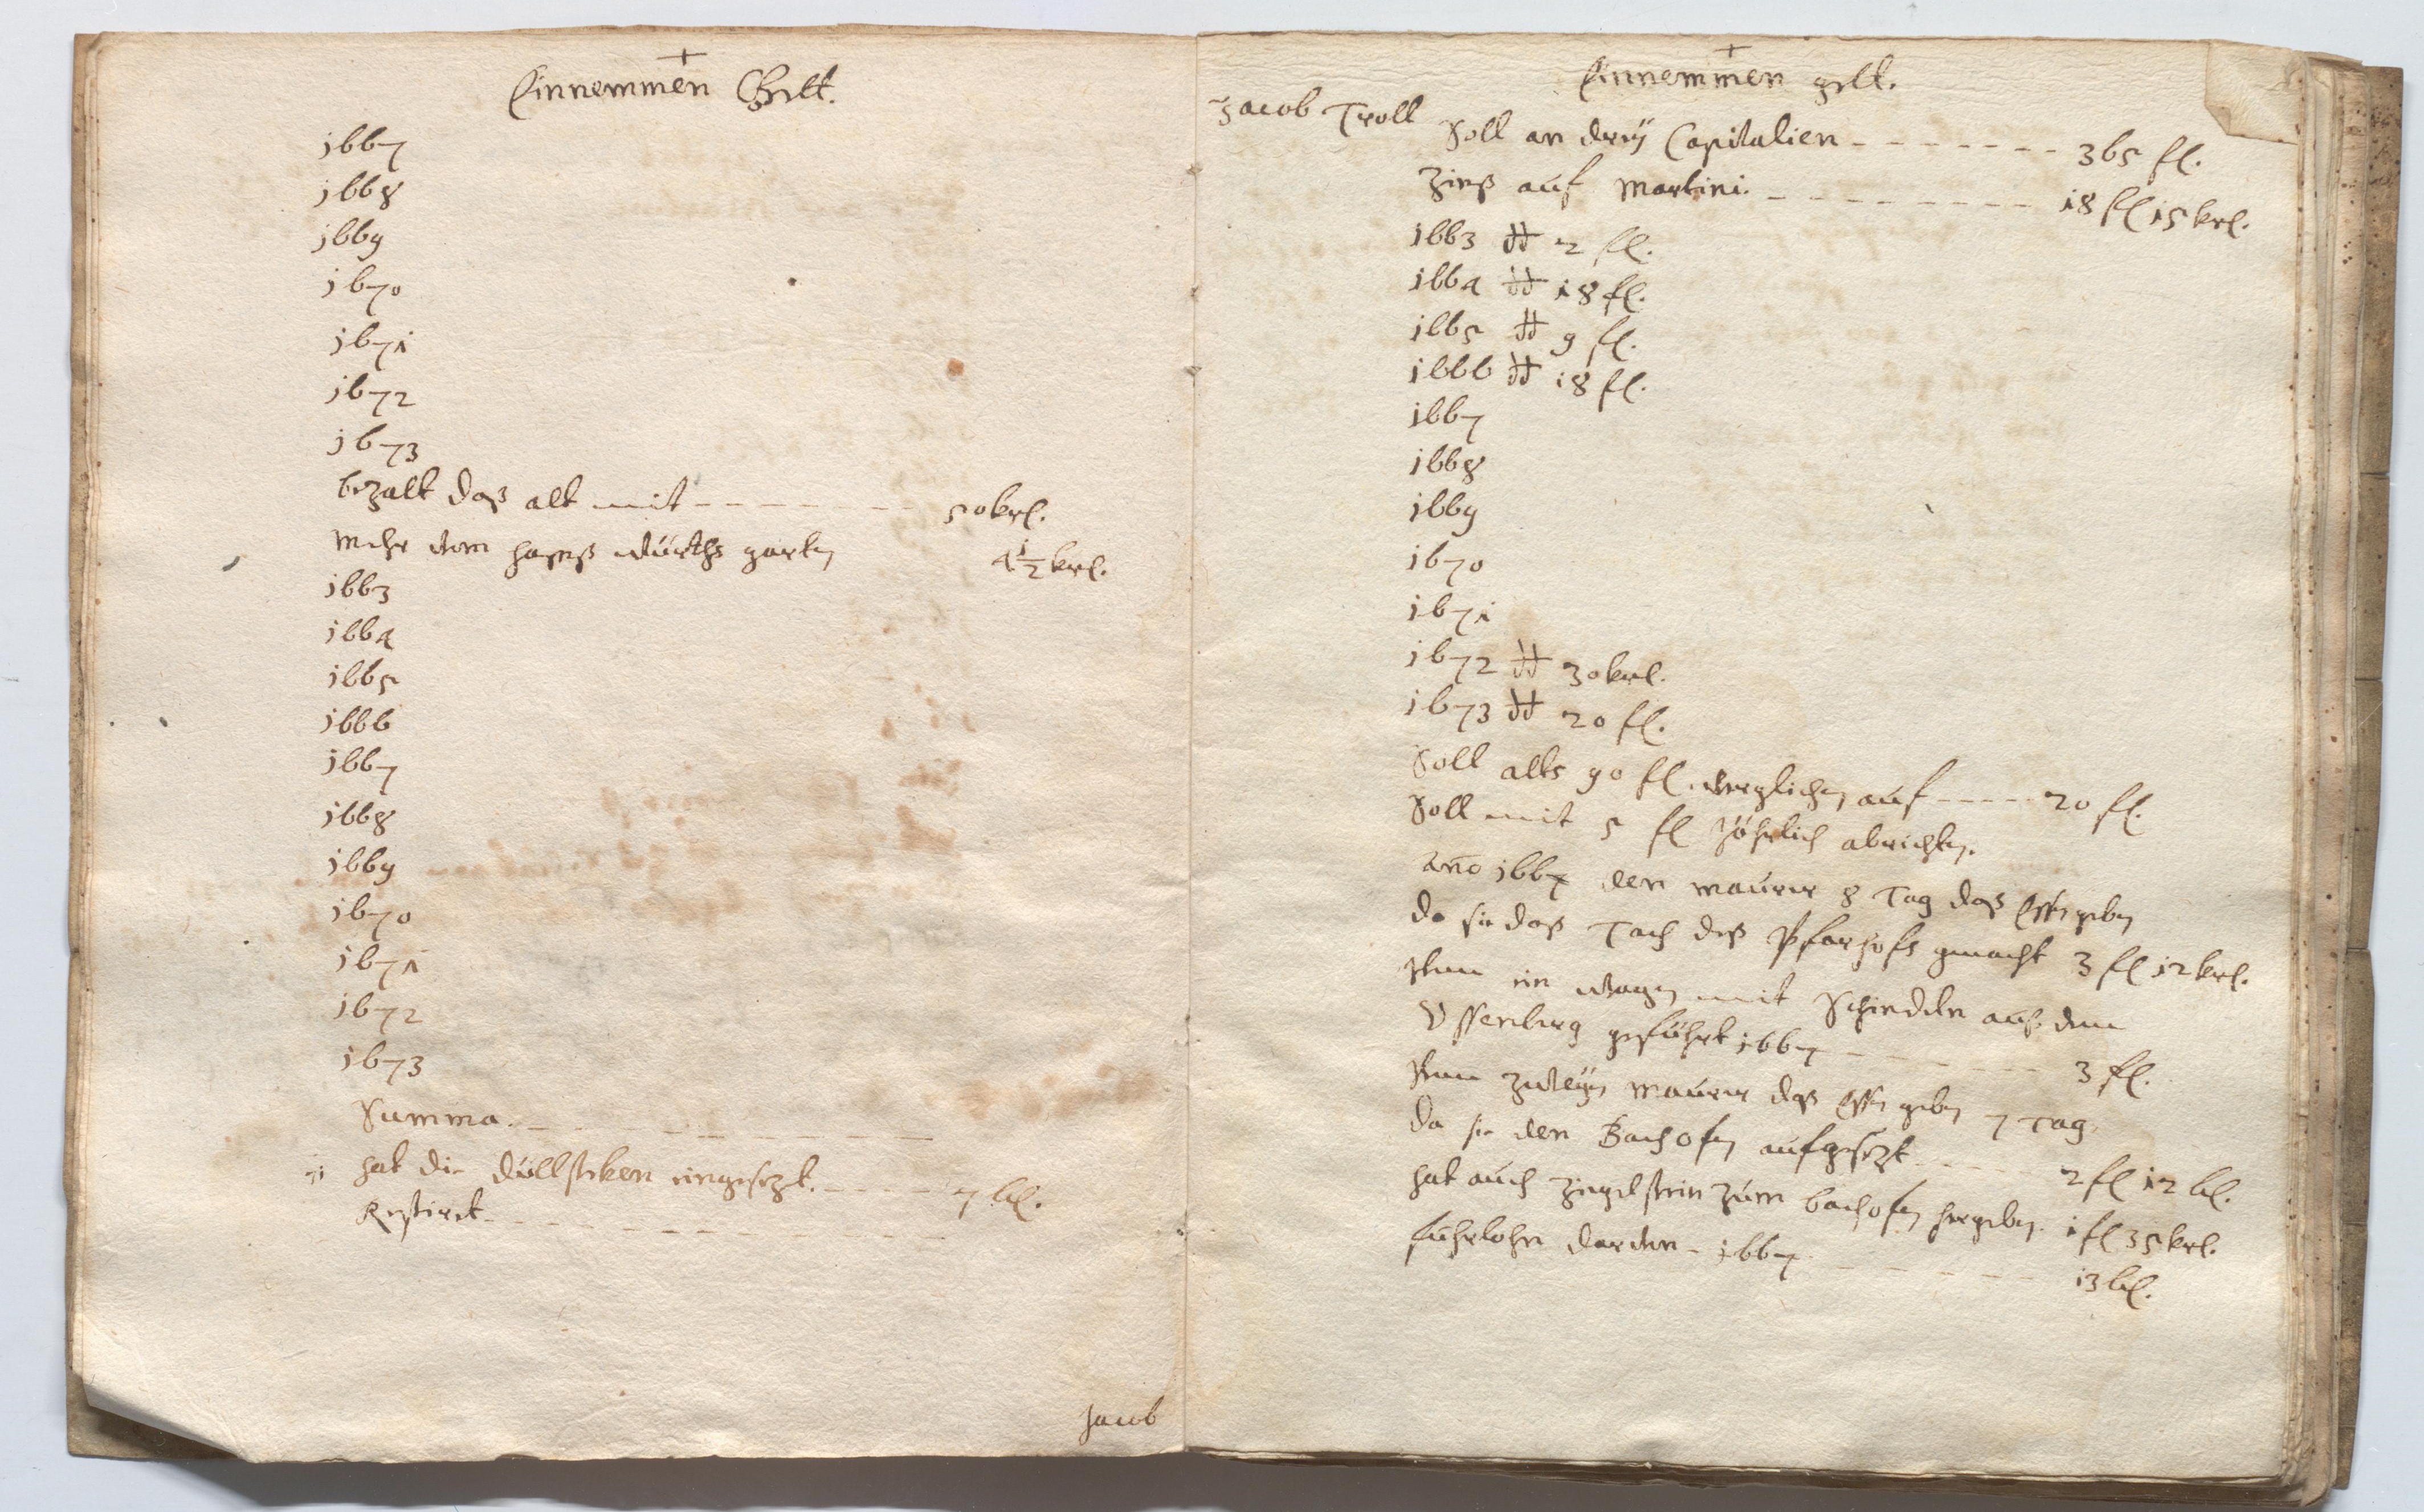 Einnemmen Gelt.
1667
1668
1669
1670
1671
1672
1673
bezalt daß alt mit 50 krl.
mehr vom hanß würths garten 4 1/2 krl.
1663
1664
1665
1666
1667
1668
1669
1670
1671
1672
1673
Summa.
hat die eingesezt. 7 bl.
Restiret
Jacob
Einnemmen gelt.
Jacob Troll
Soll an dreÿ Capitalien 365 fl.
Zinß auf Martini. 18 fl 15 krl.
1663 dt 2 fl.
1664 dt 18 fl.
1665 dt 9 fl.
1666 dt 18 fl.
1667
1668
1669
1670
1671
1672 dt 30 krl.
1673 dt 20 fl.
Soll alts 90 fl. verglichen auf 20 fl.
Soll mit 5 fl Jährlich abrichten.
Año 1667 den maurer 8 Tag daß Essen geben
da sie daß Tach deß Pfarhofs gemacht 3 fl 12 krl.
Item ein wagen mit Schindeln auß dem
geführt 1667 3 fl.
Item zweÿen maurer daß Essen geben 7 Tag
da sie den Bachofen aufgesezt 2 fl 12 bl.
hat auch ziegelstein zum bachofen hergeben. 1 fl 35 krl.
fuhrlohn darvon 1667 13 bl.